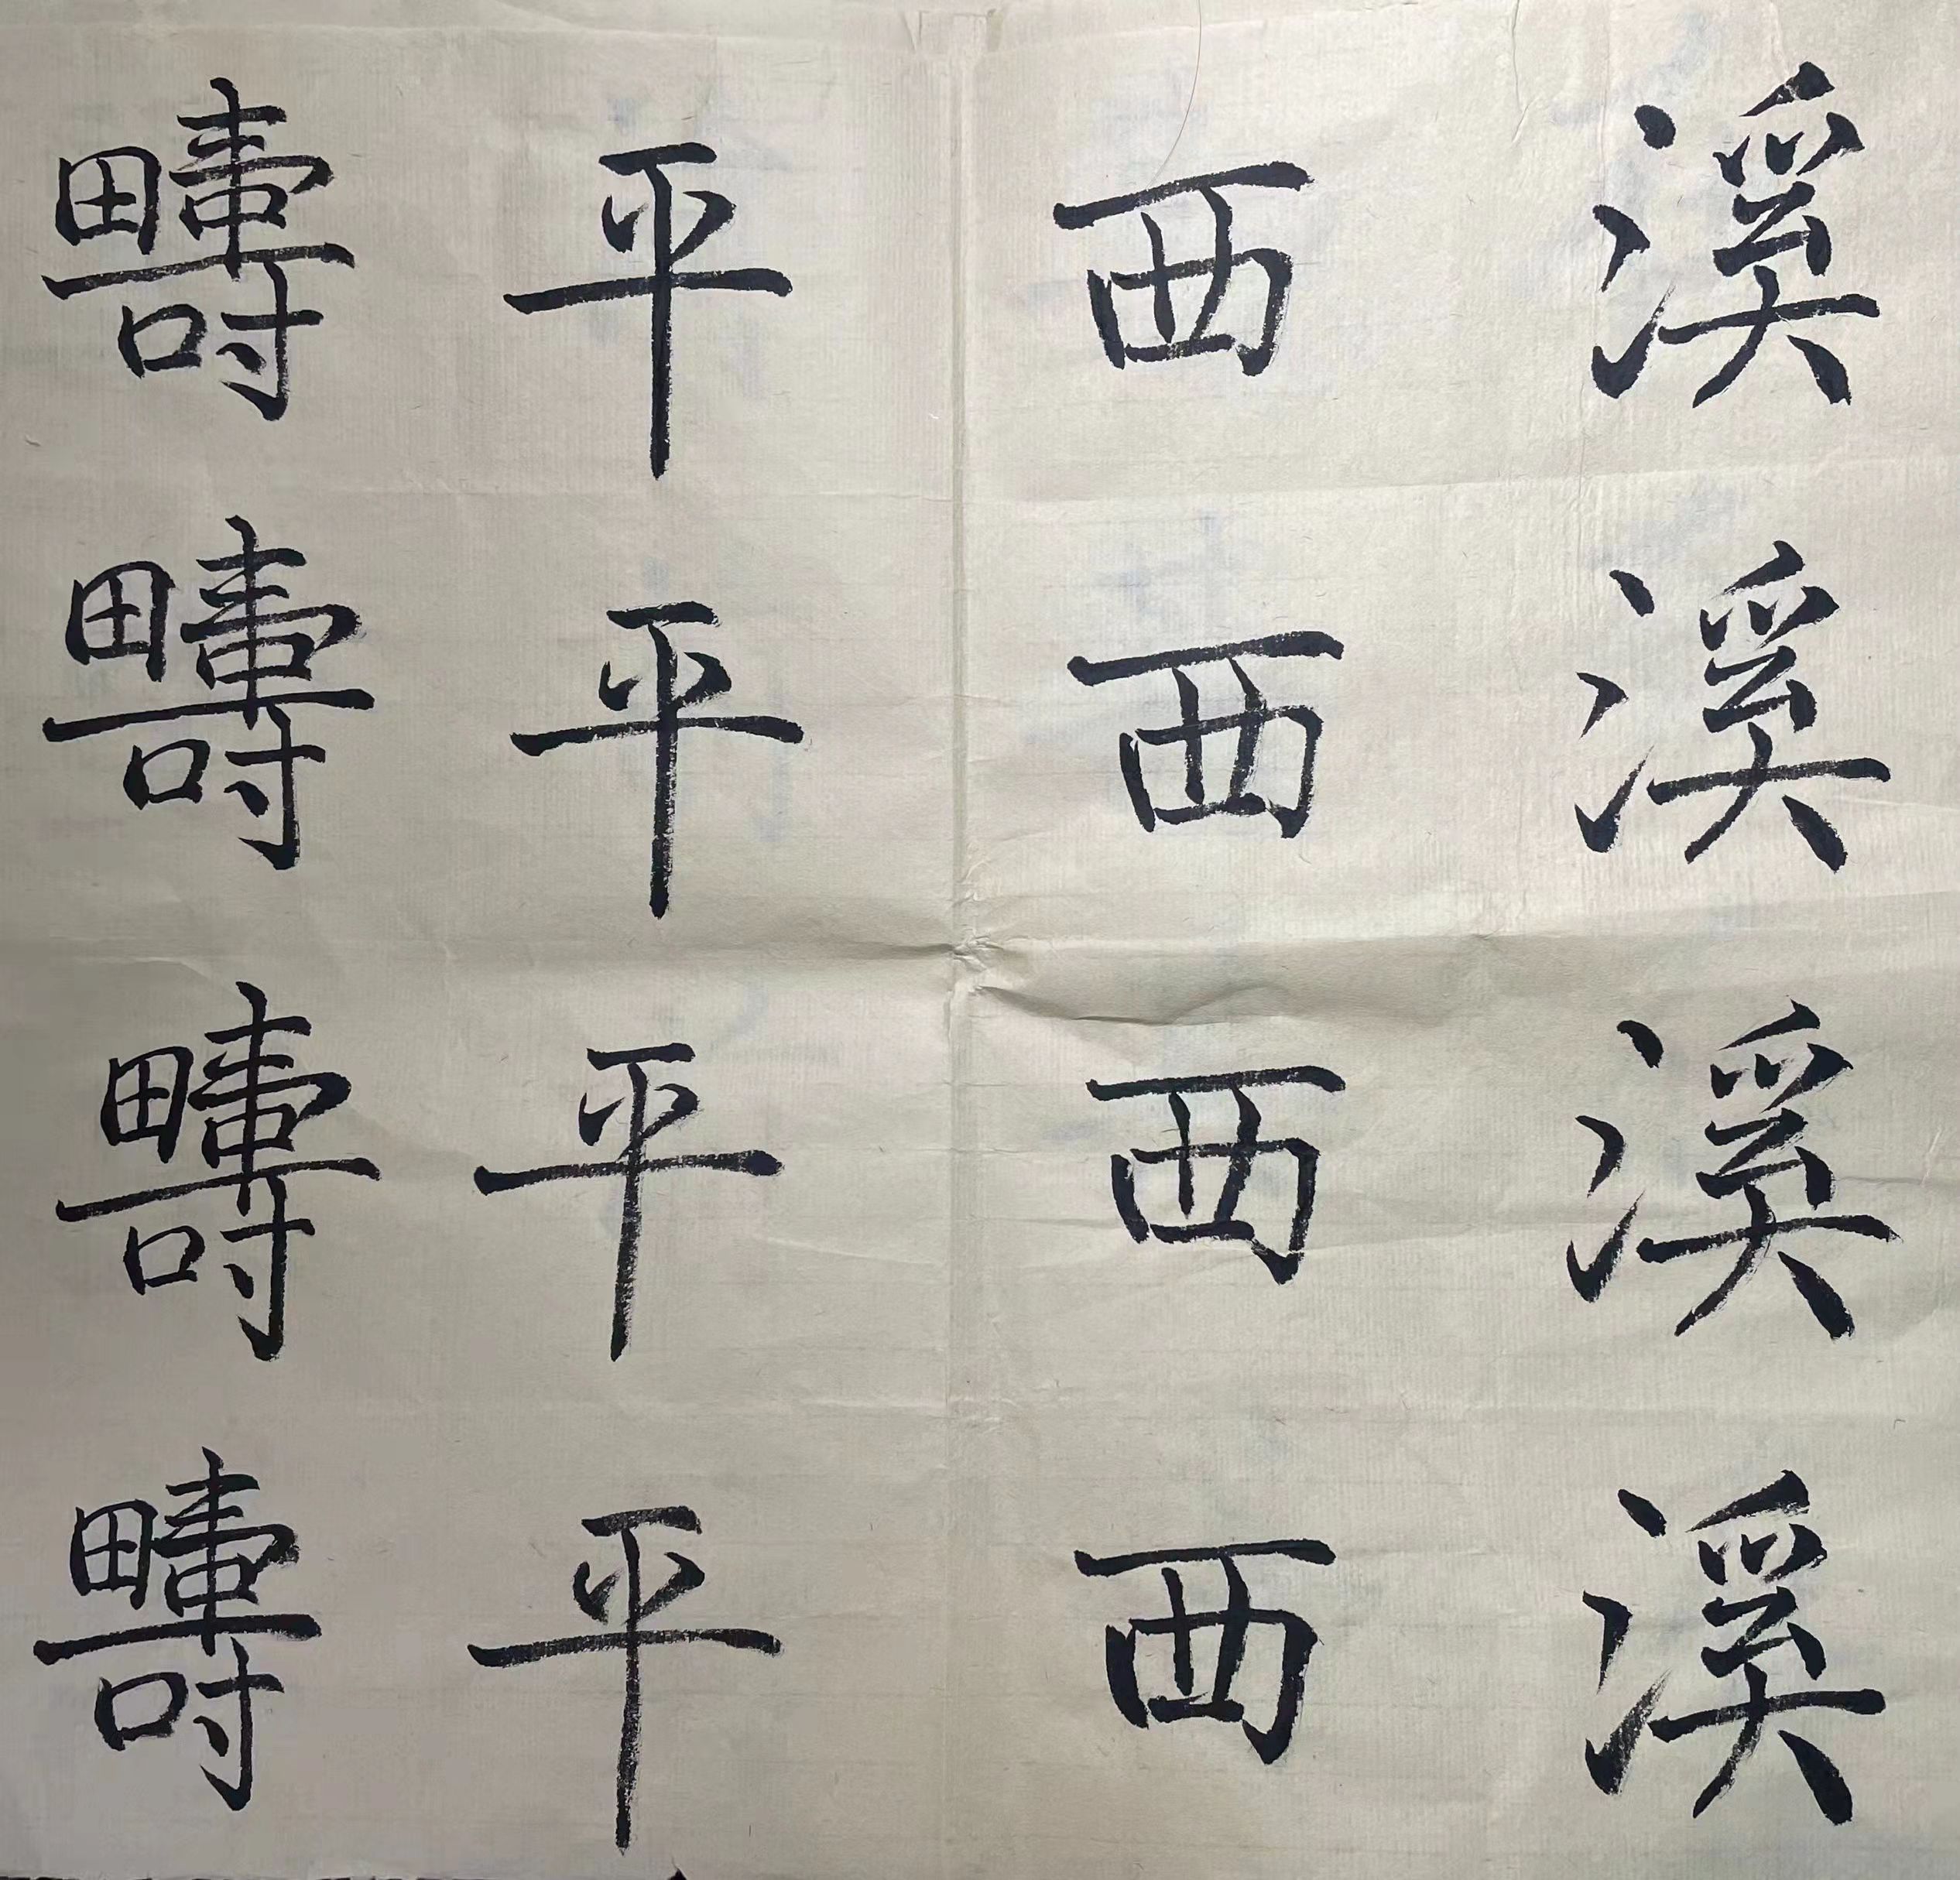 溪溪溪溪
西西西西
平平平平
疇疇疇疇